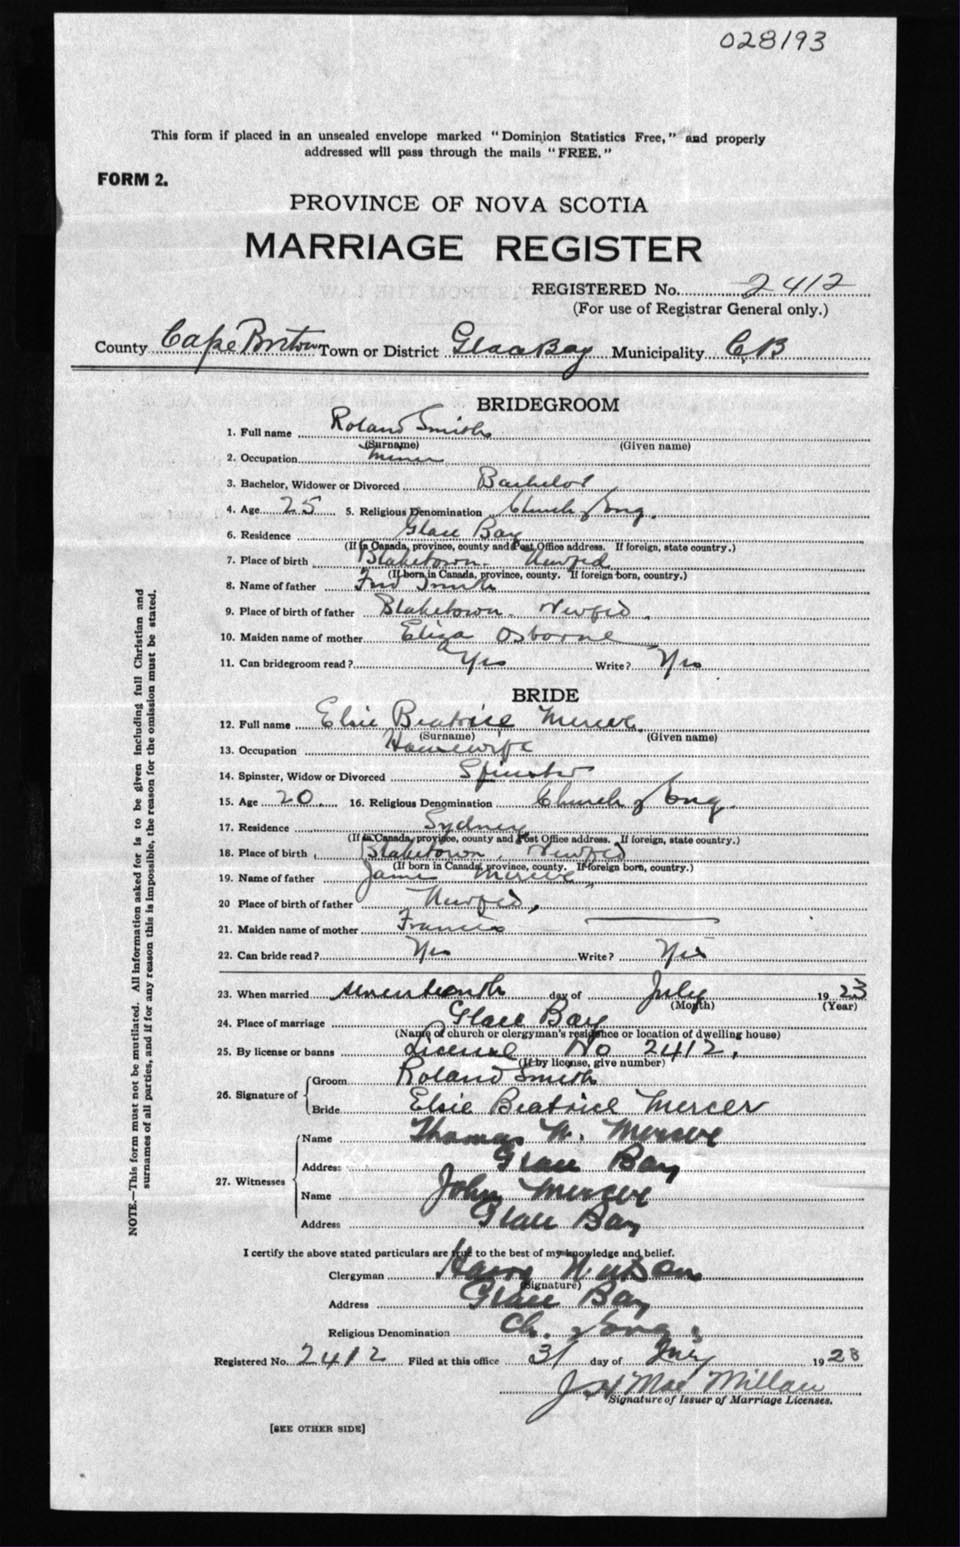 028193
This form if placed in an unsealed envelope marked "Dominion Statistics Free," and properly
addressed will pass through the mails "FREE."
FORM 2.
PROVINCE OF NOVA SCOTIA
MARRIAGE REGISTER
REGISTERED No. 2412
(For use of Registrar General only.)
County Cape Breton Town or District Glace Bay Municipality C,B
BRIDEGROOM
1. Full name Roland Smith
(Surname) (Given name)
2. Occupation Miner
3. Bachelor, Widower or Divorced Bachelor
4. Age 25 5. Religious Denomination Church of Eng.
6. Residence Glace Bay
(If in Canada, province, county and Post Office address. If foreign, state country.)
7. Place of birth Blaketown. Newfld
(If born in Canada, province, county. If foreign born, country.)
8. Name of father Fred Smith
9. Place of birth of father Blaketown. Newfld.
10. Maiden name of mother Eliza Osborne
11. Can bridegroom read? Yes Write? Yes
BRIDE
12. Full name Elsie Beatrice Mercer
(Surname) (Given name)
13. Occupation Housewife
14. Spinster, Widow or Divorced Spinster
15. Age 20. 16. Religious Denomination Church of Eng.
17. Residence Sydney
(If in Canada, province, county and Post Office address. If foreign, state country.)
18. Place of birth Blaketown, Newfld
(If born in Canada, province, county. If foreign born, country.)
19. Name of father James Mercer
20 Place of birth of father Newfld,
21. Maiden name of mother Francis
22. Can bride read? Yes Write? Yes
23. When married seventeenth day of July 1923
(Month) (Year)
24. Place of marriage Glace Bay
(Name of church or clergyman's residence or location of dwelling house)
25. By license or banns License No 2412.
(If by license, give number)
26. Signature of Groom Roland Smith
Bride Elsie Beatrice Mercer
27. Witnesses
Name Thomas W. Mercer
Address Glace Bay
Name John Mercer
Address Glace Bay
I certify the above stated particulars are true to the best of my knowledge and belief.
Clergyman Harry Watson
(Signature)
Address Glace Bay
Religious Denomination Ch. of Eng.
Registered No. 2412 Filed at this office 31 day of July 1923
J H MacMillan
Signature of Issuer of Marriage Licenses.
[SEE OTHER SIDE]
NOTE.—This form must not be mutilated. All information asked for is to be given including full Christian and
surnames of all parties, and if for any reason this is impossible, the reason for the omission must be stated.